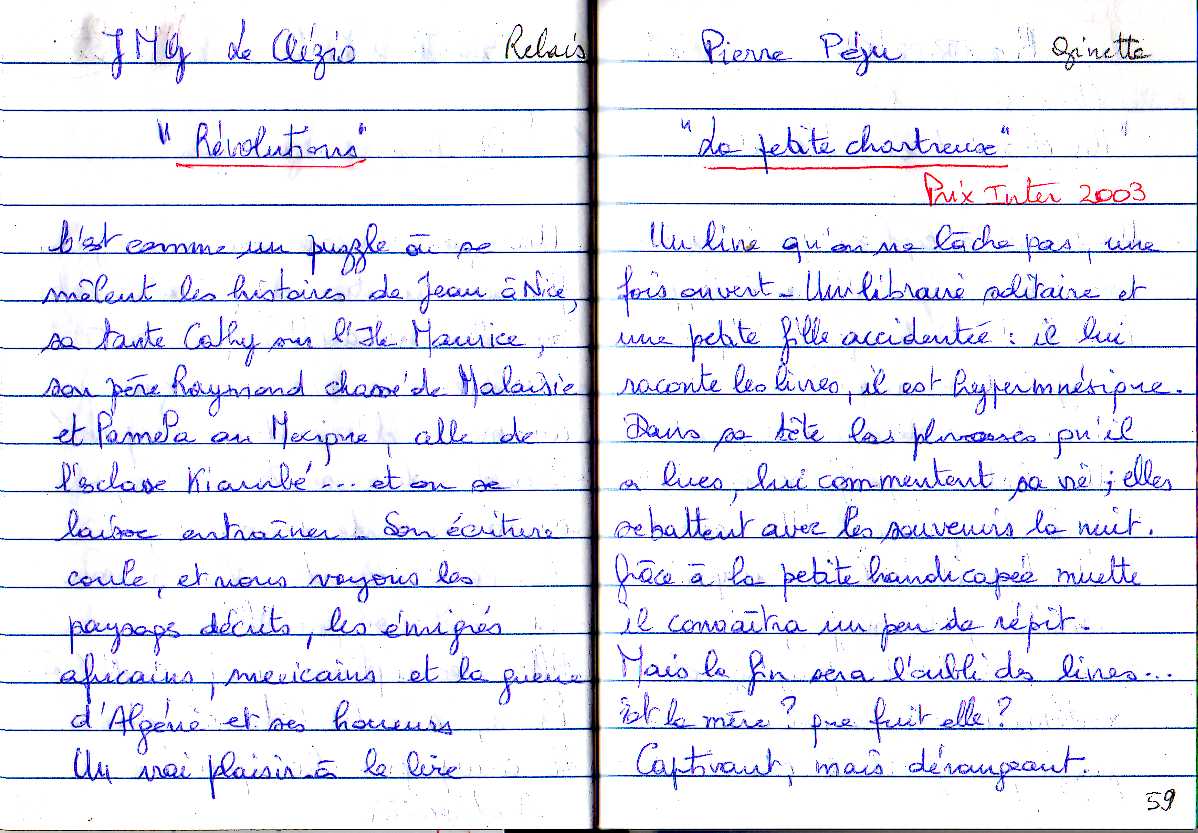 JMG Le Clézio Relais
"Révolutions"
C'est comme un puzzle où se
mêlent les histoires de Jean à Nice,
sa tante Cathy sur l'Ile Maurice,
son père Raymond chassé de Malaisie
et Pamela au Mexique, celle de
l'esclave Kiambé... et on se
laisse entraîner. Son écriture
coule, et nous voyons les
paysages décrits, les émigrés
africains, mexicains et la guerre
d'Algérie et ses horreurs
Un vrai plaisir à le lire
Pierre Péju Ginette
"La petite chartreuse"
Prix Inter 2003
Un livre qu'on ne lâche pas, une
fois ouvert - Un libraire solitaire et
une petite fille accidentée : il lui
raconte les livres, il est hypermnésique.
Dans sa tête les phrases qu'il
a lues, lui commentent sa vie ; elles
se battent avec les souvenirs la nuit.
Grâce à la petite handicapée muette
il connaîtra un peu de répit.
Mais la fin sera l'oubli des livres...
Est la mère ? que fuit elle ?
Captivant, mais dérangeant.
59